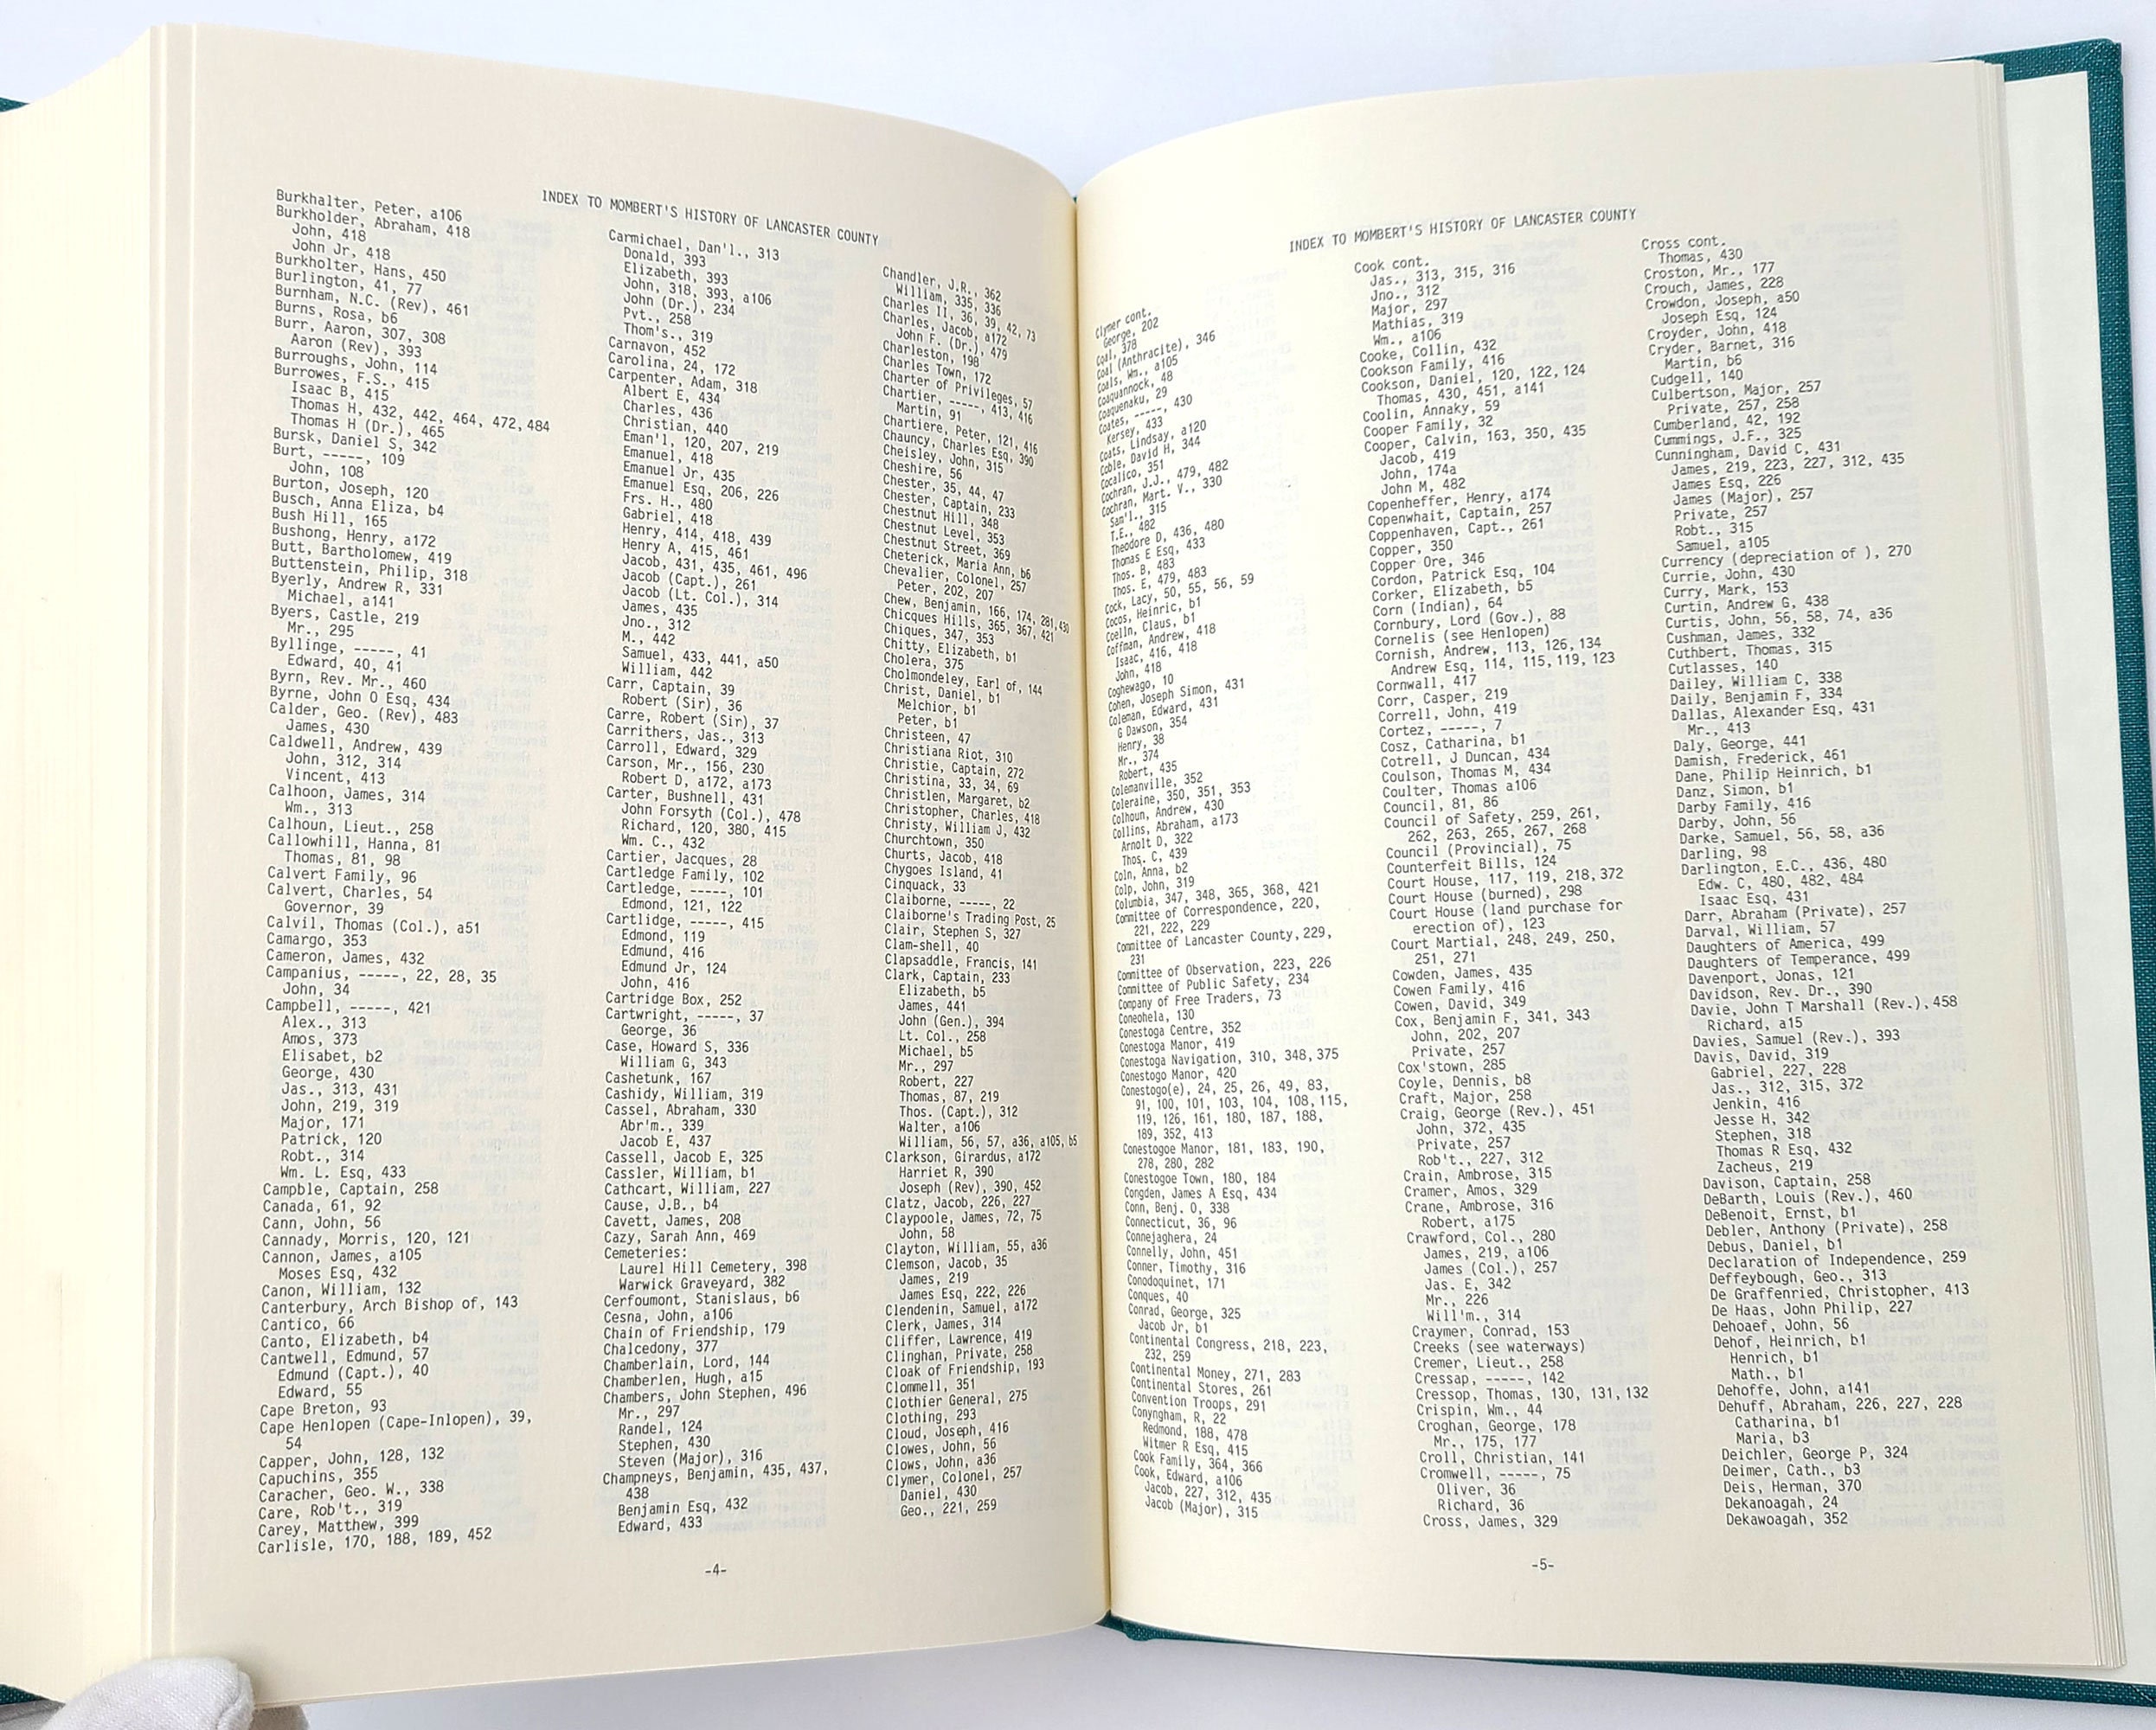 INDEX TO MOMBERT'S HISTORY OF LANCASTER COUNTY
Burkhalter, Peter, a106
Burkholder, Abraham, 418
John, 418
John Jr, 418
Burkholter, Hans, 450
Burlington, 41, 77
Burnham, N.C. (Rev), 461
Burns, Rosa, b6
Burr, Aaron, 307, 308
Aaron (Rev), 393
Burroughs, John, 114
Burrowes, F.S., 415
Isaac B, 415
Thomas H, 432, 442, 464, 472, 484
Thomas H (Dr.), 465
Bursk, Daniel S, 342
Burt, -----, 109
John, 108
Burton, Joseph, 120
Busch, Anna Eliza, b4
Bush Hill, 165
Bushong, Henry, a172
Butt, Bartholomew, 419
Buttenstein, Philip, 318
Byerly, Andrew R, 331
Michael, a141
Byers, Castle, 219
Mr., 295
Byllinge, -----, 41
Edward, 40, 41
Byrn, Rev. Mr., 460
Byrne, John O Esq, 434
Calder, Geo. (Rev), 483
James, 430
Caldwell, Andrew, 439
John, 312, 314
Vincent, 413
Calhoon, James, 314
Wm., 313
Calhoun, Lieut., 258
Callowhill, Hanna, 81
Thomas, 81, 98
Calvert Family, 96
Calvert, Charles, 54
Governor, 39
Calvil, Thomas (Col.), a51
Camargo, 353
Cameron, James, 432
Campanius, -----, 22, 28, 35
John, 34
Campbell, -----, 421
Alex., 313
Amos, 373
Elisabet, b2
George, 430
Jas., 313, 431
John, 219, 319
Major, 171
Patrick, 120
Robt., 314
Wm. L. Esq, 433
Campble, Captain, 258
Canada, 61, 92
Cann, John, 56
Cannady, Morris, 120, 121
Cannon, James, a105
Moses Esq, 432
Canon, William, 132
Canterbury, Arch Bishop of, 143
Cantico, 66
Canto, Elizabeth, b4
Cantwell, Edmund, 57
Edmund (Capt.), 40
Edward, 55
Cape Breton, 93
Cape Henlopen (Cape-Inlopen), 39,
54
Capper, John, 128, 132
Capuchins, 355
Caracher, Geo. W., 338
Care, Rob't., 319
Carey, Matthew, 399
Carlisle, 170, 188, 189, 452
Carmichael, Dan'l., 313
Donald, 393
Elizabeth, 393
John, 318, 393, a106
John (Dr.), 234
Pvt., 258
Thom's., 319
Carnavon, 452
Carolina, 24, 172
Carpenter, Adam, 318
Albert E, 434
Charles, 436
Christian, 440
Eman'l, 120, 207, 219
Emanuel, 418
Emanuel Jr, 435
Emanuel Esq, 206, 226
Frs. H., 480
Gabriel, 418
Henry, 414, 418, 439
Henry A, 415, 461
Jacob, 431, 435, 461, 496
Jacob (Capt.), 261
Jacob (Lt. Col.), 314
James, 435
Jno., 312
M., 442
Samuel, 433, 441, a50
William, 442
Carr, Captain, 39
Robert (Sir), 36
Carre, Robert (Sir), 37
Carrithers, Jas., 313
Carroll, Edward, 329
Carson, Mr., 156, 230
Robert D, a172, a173
Carter, Bushnell, 431
John Forsyth (Col.), 478
Richard, 120, 380, 415
Wm. C., 432
Cartier, Jacques, 28
Cartledge Family, 102
Cartledge, -----, 101
Edmond, 121, 122
Cartlidge, -----, 415
Edmond, 119
Edmund, 416
Edmund Jr, 124
John, 416
Cartridge Box, 252
Cartwright, -----, 37
George, 36
Case, Howard S, 336
William G, 343
Cashetunk, 167
Cashidy, William, 319
Cassel, Abraham, 330
Abr'm., 339
Jacob E, 437
Cassell, Jacob E, 325
Cassler, William, b1
Cathcart, William, 227
Cause, J.B., b4
Cavett, James, 208
Cazy, Sarah Ann, 469
Cemeteries:
Laurel Hill Cemetery, 398
Warwick Graveyard, 382
Cerfoumont, Stanislaus, b6
Cesna, John, a106
Chain of Friendship, 179
Chalcedony, 377
Chamberlain, Lord, 144
Chamberlen, Hugh, a15
Chambers, John Stephen, 496
Mr., 297
Randel, 124
Stephen, 430
Steven (Major), 316
Champneys, Benjamin, 435, 437,
438
Benjamin Esq, 432
Edward, 433
Chandler, J.R., 362
William, 335, 336
Charles II, 36, 39, 42, 73
Charles, Jacob, a172
John F. (Dr.), 479
Charleston, 198
Charles Town, 172
Charter of Privileges, 57
Chartier, -----, 413, 416
Martin, 91
Chartiere, Peter, 121, 416
Chauncy, Charles Esq, 390
Cheisley, John, 315
Cheshire, 56
Chester, 35, 44, 47
Chester, Captain, 233
Chestnut Hill, 348
Chestnut Level, 353
Chestnut Street, 369
Cheterick, Maria Ann, b6
Chevalier, Colonel, 257
Peter, 202, 207
Chew, Benjamin, 166, 174, 281, 430
Chicques Hills, 365, 367, 421
Chiques, 347, 353
Chitty, Elizabeth, b1
Cholera, 375
Cholmondeley, Earl of, 144
Christ, Daniel, b1
Melchior, b1
Peter, b1
Christeen, 47
Christiana Riot, 310
Christie, Captain, 272
Christina, 33, 34, 69
Christlen, Margaret, b2
Christopher, Charles, 418
Christy, William J, 432
Churchtown, 350
Churts, Jacob, 418
Chygoes Island, 41
Cinquack, 33
Claiborne, -----, 22
Claiborne's Trading Post, 25
Clair, Stephen S, 327
Clam-shell, 40
Clapsaddle, Francis, 141
Clark, Captain, 233
Elizabeth, b5
James, 441
John (Gen.), 394
Lt. Col., 258
Michael, b5
Mr., 297
Robert, 227
Thomas, 87, 219
Thos. (Capt.), 312
Walter, a106
William, 56, 57, a36, a105, b5
Clarkson, Girardus, a172
Harriet R, 390
Joseph (Rev), 390, 452
Clatz, Jacob, 226, 227
Claypoole, James, 72, 75
John, 58
Clayton, William, 55, a36
Clemson, Jacob, 35
James, 219
James Esq, 222, 226
Clendenin, Samuel, a172
Clerk, James, 314
Cliffer, Lawrence, 419
Clinghan, Private, 258
Cloak of Friendship, 193
Clommell, 351
Clothier General, 275
Clothing, 293
Cloud, Joseph, 416
Clowes, John, 56
Clows, John, a36
Clymer, Colonel, 257
Daniel, 430
Geo., 221, 259
-4-
INDEX TO MOMBERT'S HISTORY OF LANCASTER COUNTY
Clymer cont.
George, 202
Coal, 378
Coal (Anthracite), 346
Coals, Wm., a105
Coaquannock, 48
Coaquenaku, 29
Coates, -----, 430
Kersey, 433
Coats, Lindsay, a120
Coble, David H, 344
Cocalico, 351
Cochran, J.J., 479, 482
Cochran, Mart. V., 330
Sam'l., 315
T.E., 482
Theodore D, 436, 480
Thomas E Esq, 433
Thos. B, 483
Thos. E, 479, 483
Cock, Lacy, 50, 55, 56, 59
Cocos, Heinric, b1
Coelln, Claus, b1
Coffman, Andrew, 418
Isaac, 416, 418
John, 418
Coghewago, 10
Cohen, Joseph Simon, 431
Coleman, Edward, 431
G Dawson, 354
Henry, 38
Mr., 374
Robert, 435
Colemanville, 352
Coleraine, 350, 351, 353
Colhoun, Andrew, 430
Collins, Abraham, a173
Arnolt D, 322
Thos. C, 439
Coln, Anna, b2
Colp, John, 319
Columbia, 347, 348, 365, 368, 421
Committee of Correspondence, 220,
221, 222, 229
Committee of Lancaster County, 229,
231
Committee of Observation, 223, 226
Committee of Public Safety, 234
Company of Free Traders, 73
Coneohela, 130
Conestoga Centre, 352
Conestoga Manor, 419
Conestoga Navigation, 310, 348, 375
Conestogo Manor, 420
Conestogo(e), 24, 25, 26, 49, 83,
91, 100, 101, 103, 104, 108, 115,
119, 126, 161, 180, 187, 188,
189, 352, 413
Conestogoe Manor, 181, 183, 190,
278, 280, 282
Conestogoe Town, 180, 184
Congden, James A Esq, 434
Conn, Benj. O, 338
Connecticut, 36, 96
Connejaghera, 24
Connelly, John, 451
Conner, Timothy, 316
Conodoquinet, 171
Conques, 40
Conrad, George, 325
Jacob Jr, b1
Continental Congress, 218, 223,
232, 259
Continental Money, 271, 283
Continental Stores, 261
Convention Troops, 291
Conyngham, R, 22
Redmond, 188, 478
Witmer R Esq, 415
Cook Family, 364, 366
Cook, Edward, a106
Jacob, 227, 312, 435
Jacob (Major), 315
Cook cont.
Jas., 313, 315, 316
Jno., 312
Major, 297
Mathias, 319
Wm., a106
Cooke, Collin, 432
Cookson Family, 416
Cookson, Daniel, 120, 122, 124
Thomas, 430, 451, a141
Coolin, Annaky, 59
Cooper Family, 32
Cooper, Calvin, 163, 350, 435
Jacob, 419
John, 174a
John M, 482
Copenheffer, Henry, a174
Copenwhait, Captain, 257
Coppenhaven, Capt., 261
Copper, 350
Copper Ore, 346
Cordon, Patrick Esq, 104
Corker, Elizabeth, b5
Corn (Indian), 64
Cornbury, Lord (Gov.), 88
Cornelis (see Henlopen)
Cornish, Andrew, 113, 126, 134
Andrew Esq, 114, 115, 119, 123
Cornwall, 417
Corr, Casper, 219
Correll, John, 419
Cortez, -----, 7
Cosz, Catharina, b1
Cotrell, J Duncan, 434
Coulson, Thomas M, 434
Coulter, Thomas a106
Council, 81, 86
Council of Safety, 259, 261,
262, 263, 265, 267, 268
Council (Provincial), 75
Counterfeit Bills, 124
Court House, 117, 119, 218, 372
Court House (burned), 298
Court House (land purchase for
erection of), 123
Court Martial, 248, 249, 250,
251, 271
Cowden, James, 435
Cowen Family, 416
Cowen, David, 349
Cox, Benjamin F, 341, 343
John, 202, 207
Private, 257
Cox'stown, 285
Coyle, Dennis, b8
Craft, Major, 258
Craig, George (Rev.), 451
John, 372, 435
Private, 257
Rob't., 227, 312
Crain, Ambrose, 315
Cramer, Amos, 329
Crane, Ambrose, 316
Robert, a175
Crawford, Col., 280
James, 219, a106
James (Col.), 257
Jas. E, 342
Mr., 226
Will'm., 314
Craymer, Conrad, 153
Creeks (see waterways)
Cremer, Lieut., 258
Cressap, -----, 142
Cressop, Thomas, 130, 131, 132
Crispin, Wm., 44
Croghan, George, 178
Mr., 175, 177
Croll, Christian, 141
Cromwell, -----, 75
Oliver, 36
Richard, 36
Cross, James, 329
Cross cont.
Thomas, 430
Croston, Mr., 177
Crouch, James, 228
Crowdon, Joseph, a50
Joseph Esq, 124
Croyder, John, 418
Cryder, Barnet, 316
Martin, b6
Cudgell, 140
Culbertson, Major, 257
Private, 257, 258
Cumberland, 42, 192
Cummings, J.F., 325
Cunningham, David C, 431
James, 219, 223, 227, 312, 435
James Esq, 226
James (Major), 257
Private, 257
Robt., 315
Samuel, a105
Currency (depreciation of ), 270
Currie, John, 430
Curry, Mark, 153
Curtin, Andrew G, 438
Curtis, John, 56, 58, 74, a36
Cushman, James, 332
Cuthbert, Thomas, 315
Cutlasses, 140
Dailey, William C, 338
Daily, Benjamin F, 334
Dallas, Alexander Esq, 431
Mr., 413
Daly, George, 441
Damish, Frederick, 461
Dane, Philip Heinrich, b1
Danz, Simon, b1
Darby Family, 416
Darby, John, 56
Darke, Samuel, 56, 58, a36
Darling, 98
Darlington, E.C., 436, 480
Edw. C, 480, 482, 484
Isaac Esq, 431
Darr, Abraham (Private), 257
Darval, William, 57
Daughters of America, 499
Daughters of Temperance, 499
Davenport, Jonas, 121
Davidson, Rev. Dr., 390
Davie, John T Marshall (Rev.), 458
Richard, a15
Davies, Samuel (Rev.), 393
Davis, David, 319
Gabriel, 227, 228
Jas., 312, 315, 372
Jenkin, 416
Jesse H, 342
Stephen, 318
Thomas R Esq, 432
Zacheus, 219
Davison, Captain, 258
DeBarth, Louis (Rev.), 460
DeBenoit, Ernst, b1
Debler, Anthony (Private), 258
Debus, Daniel, b1
Declaration of Independence, 259
Deffeybough, Geo., 313
De Graffenried, Christopher, 413
De Haas, John Philip, 227
Dehoaef, John, 56
Dehof, Heinrich, b1
Henrich, b1
Math., b1
Dehoffe, John, a141
Dehuff, Abraham, 226, 227, 228
Catharina, b1
Maria, b3
Deichler, George P, 324
Deimer, Cath., b3
Deis, Herman, 370
Dekanoagah, 24
Dekawoagah, 352
-5-